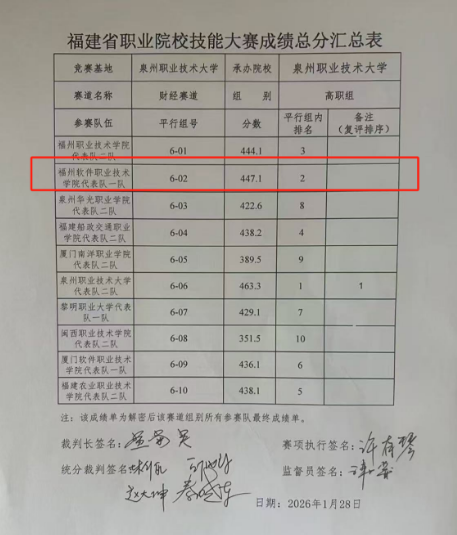 福建省职业院校技能大赛成绩总分汇总表
竞赛基地 泉州职业技术大学 承办院校 泉州职业技术大学
赛道名称 财经赛道 组 别 高职组
参赛队伍 平行组号 分数 平行组内排名 备注（复评排序）
福州职业技术学院代表队二队 6-01 444.1 3
福州软件职业技术学院代表队一队 6-02 447.1 2
泉州华光职业学院代表队二队 6-03 422.6 8
福建船政交通职业学院代表队二队 6-04 438.2 4
厦门南洋职业学院代表队二队 6-05 389.5 9
泉州职业技术大学代表队二队 6-06 463.3 1 1
黎明职业大学代表队一队 6-07 429.1 7
闽西职业技术学院代表队二队 6-08 351.5 10
厦门软件职业技术学院代表队一队 6-09 436.1 6
福建农业职业技术学院代表队二队 6-10 438.1 5
注：该成绩单为解密后该赛道组别所有参赛队最终成绩单。
裁判长签名： 赛项执行签名：
统分裁判签名 监督员签名：
日期：2026年1月28日